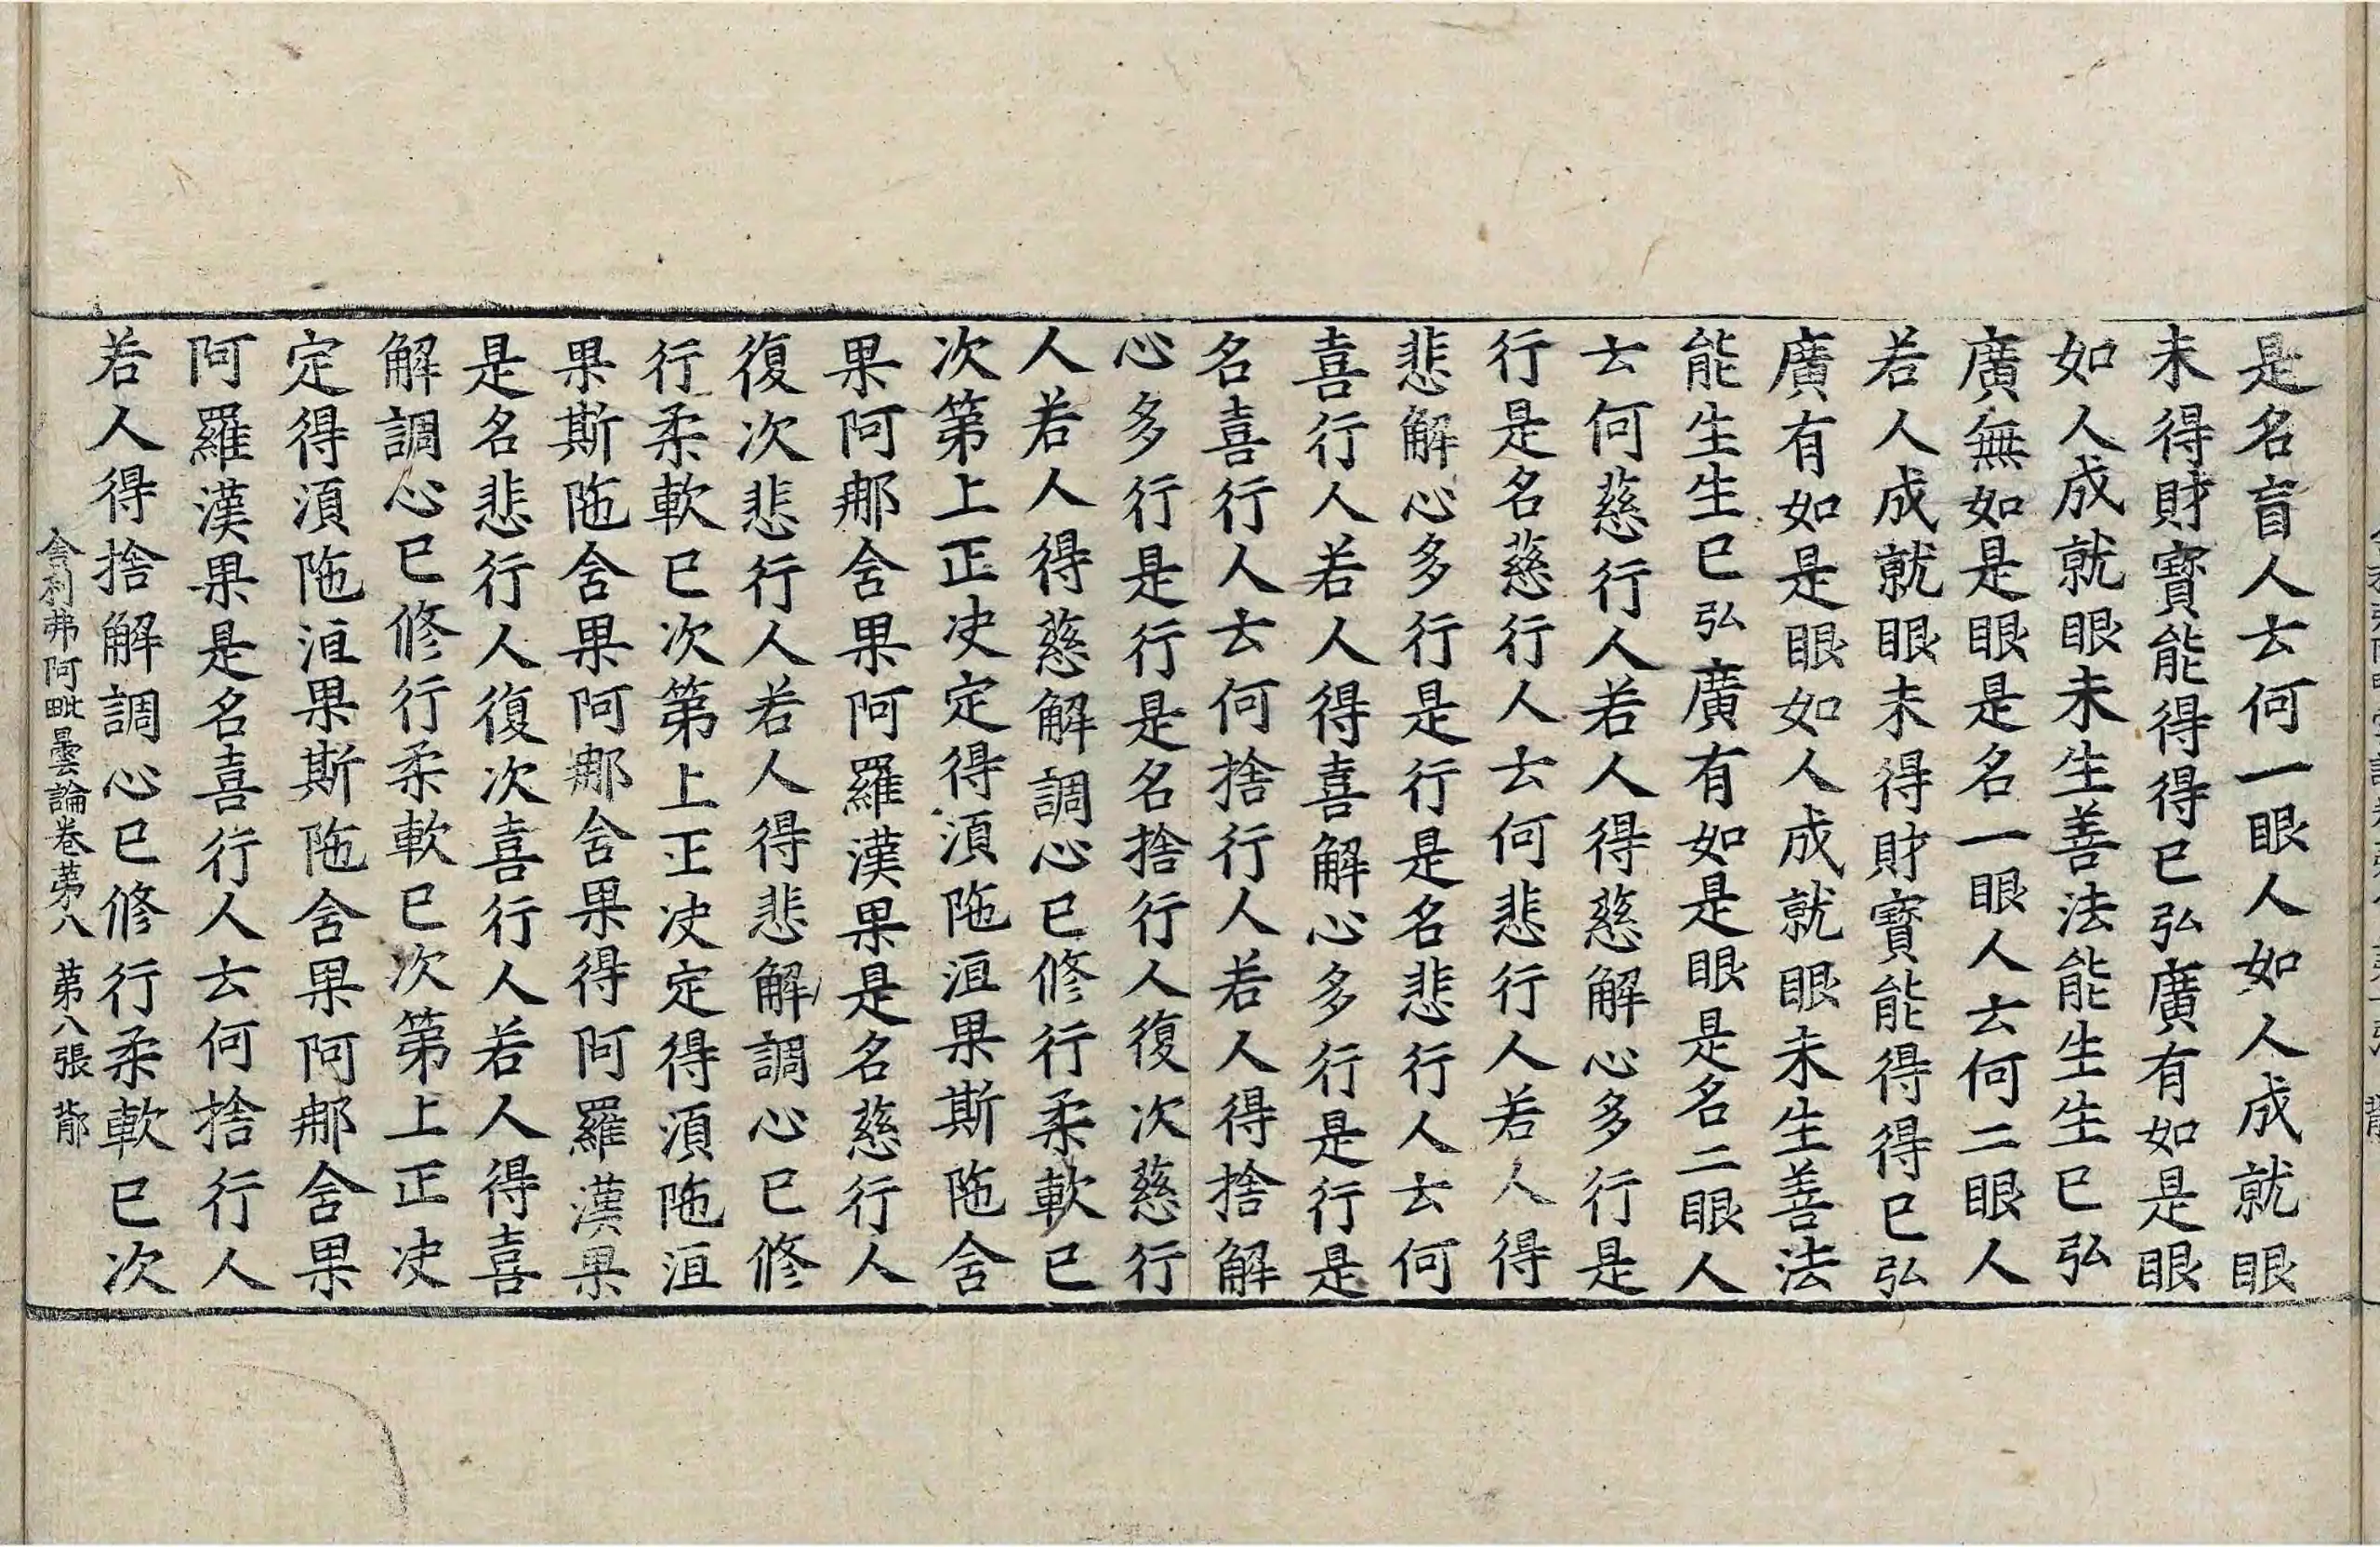 是名盲人云何一眼人如人成就眼
未得財寶能得得已弘廣有如是眼
如人成就眼未生善法能生生已弘
廣無如是眼是名一眼人云何二眼人
若人成就眼未得財寶能得得已弘
廣有如是眼如人成就眼未生善法
能生生已弘廣有如是眼是名二眼人
云何慈行人若人得慈解心多行是
行是名慈行人云何悲行人若人得
悲解心多行是行是名悲行人云何
喜行人若人得喜解心多行是行是
名喜行人云何捨行人若人得捨解
心多行是行是名捨行人復次慈行
人若人得慈解調心已修行柔軟已
次第上正决定得湏陁洹果斯陁舍
果阿那舍果阿羅漢果是名慈行人
復次悲行人若人得悲解調心已修
行柔軟已次第上正决定得湏陁洹
果斯陁舍果阿那舍果得阿羅漢果
是名悲行人復次喜行人若人得喜
解調心已修行柔軟已次第上正决
定得湏陁洹果斯陁舍果阿那舍果
阿羅漢果是名喜行人云何捨行人
若人得捨解調心已修行柔軟已次
舍利弗阿毗曇論卷苐八 苐八張